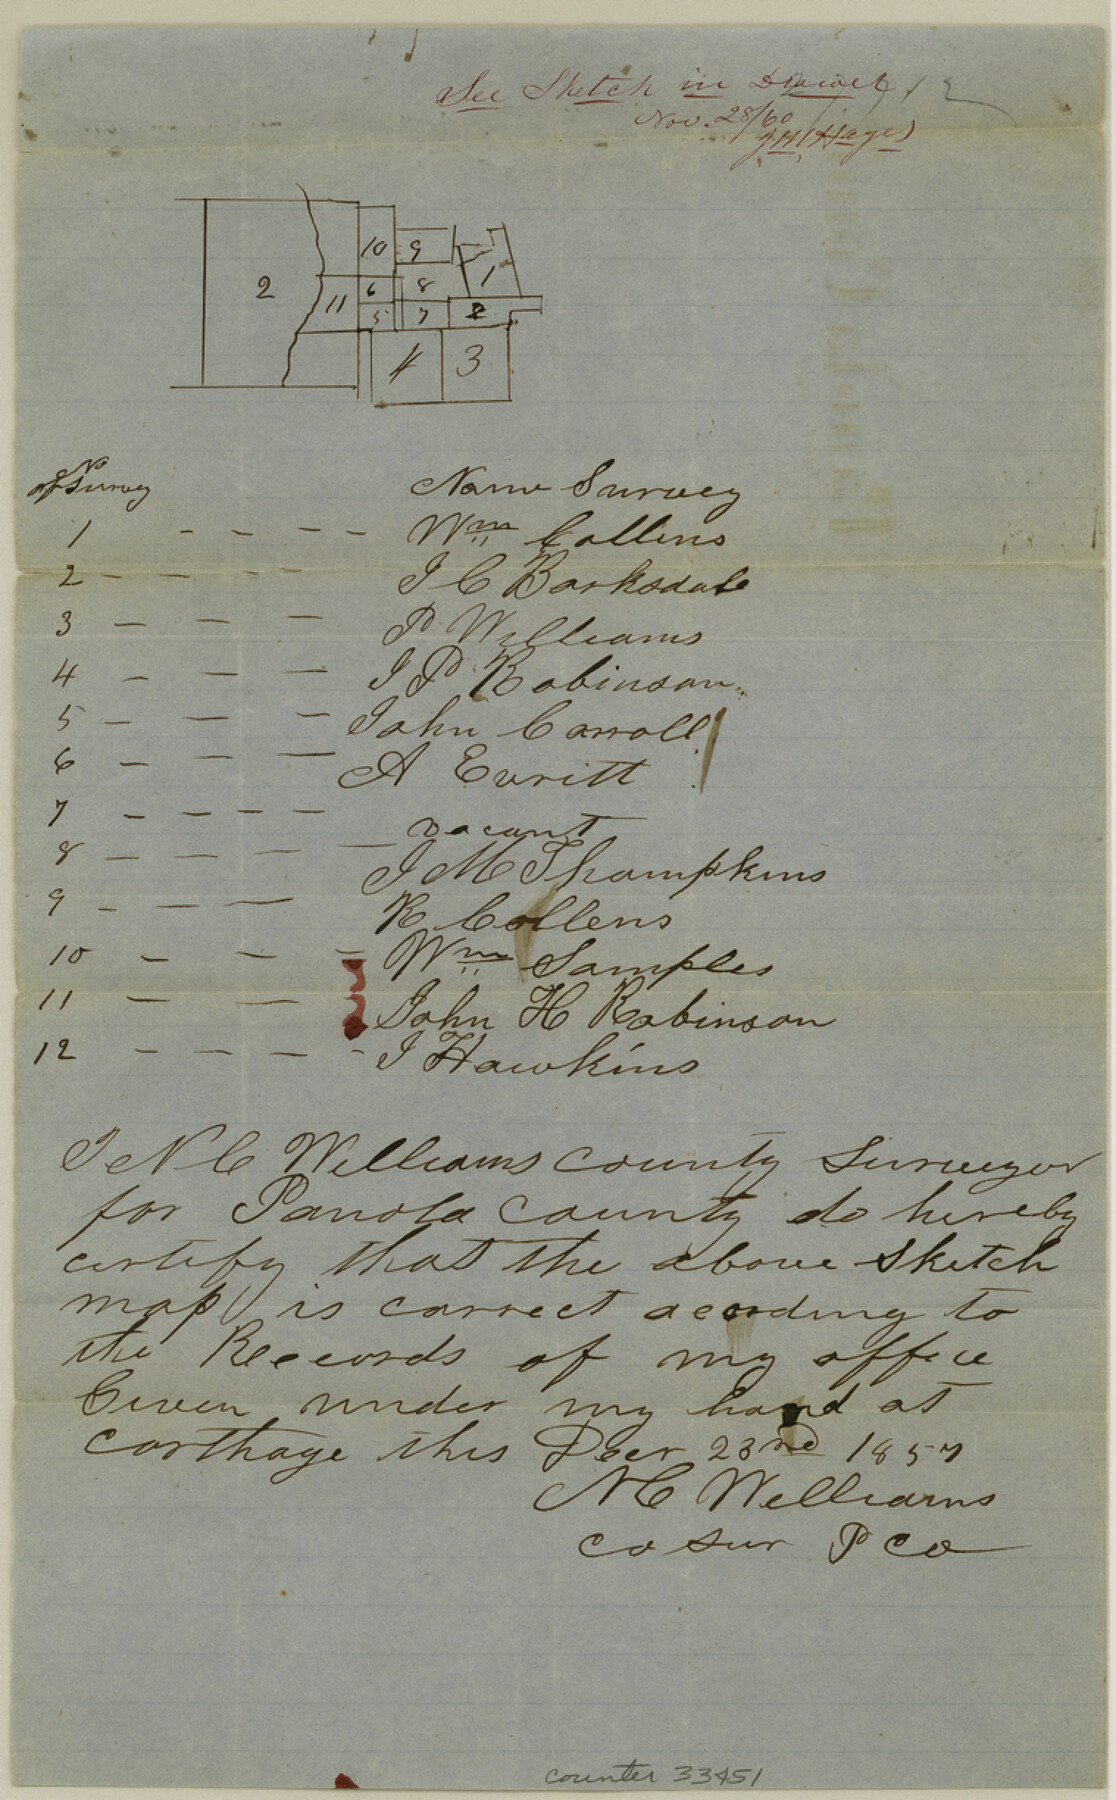 See Sketch in Drawer 12
Nov. 28/60
J.H. Hayes
10 9
2 11 6 8 1
5 7 2
4 3
No
of Survey Name Survey
1 - - - - Wm Collens
2 - - - - J C Barksdale
3 - - - P Williams
4 - - - J P Robinson
5 - - - John Carroll
6 - - - A Evritt
7 - - - - vacant
8 - - - - J M Thompkins
9 - - - R Collens
10 - - - Wm Samples
11 - - - John H Robinson
12 - - - - J Hawkins
I N C Williams county Surveyor
for Panola county do hereby
certify that the above sketch
map is correct acording to
the Records of my office
Given under my hand at
carthage this Decr 23rd 1857
N C Williams
co sur P co
counter 33451